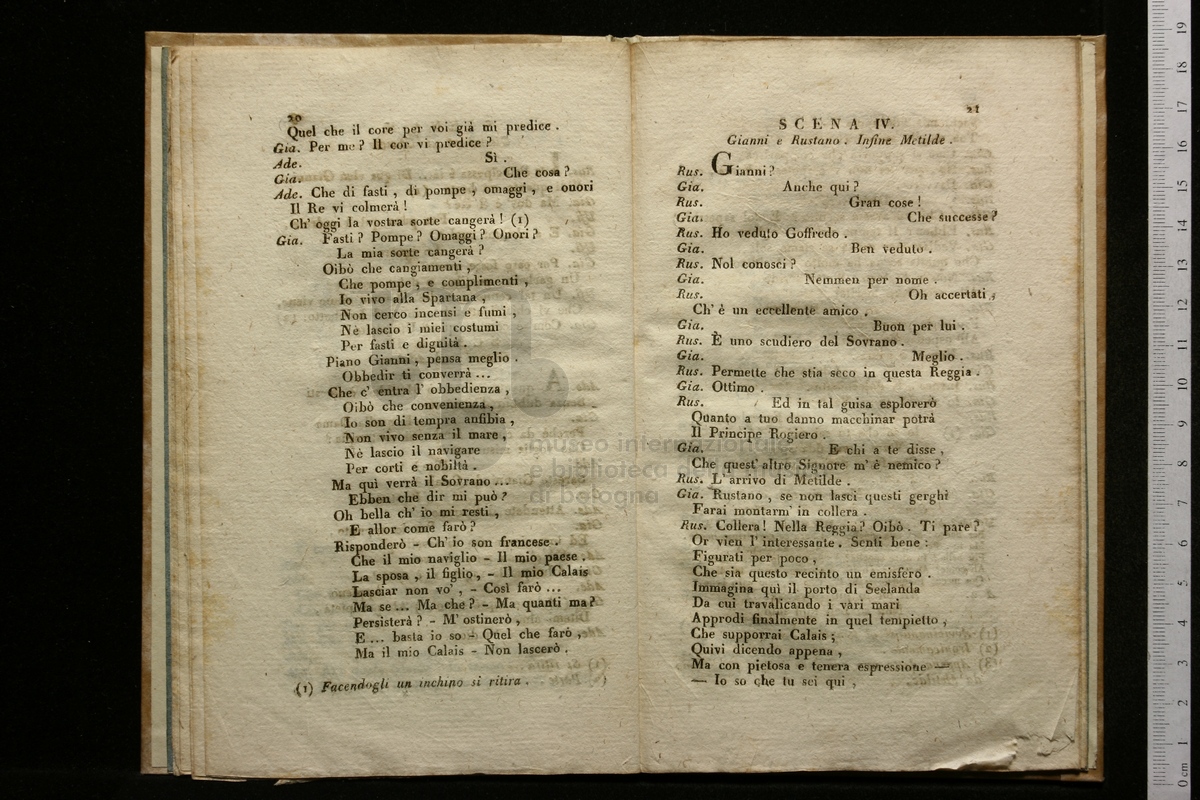 20
Quel che il core per voi già mi predice .
Gia. Per me ? Il cor vi predice ?
Ade. Sì .
Gia. Che cosa ?
Ade. Che di fasti , di pompe , omaggi , e onori
Il Re vi colmerà !
Ch' oggi la vostra sorte cangerà ! (1)
Gia. Fasti ? Pompe ? Omaggi ? Onori ?
La mia sorte cangerà ?
Oibò che cangiamenti ,
Che pompe , e complimenti ,
Io vivo alla Spartana ,
Non cerco incensi e fumi ,
Nè lascio i miei costumi
Per fasti e dignità .
Piano Gianni , pensa meglio .
Obbedir ti converrà ...
Che c' entra l' obbedienza ,
Oibò che convenienza ,
Io son di tempra anfibia ,
Non vivo senza il mare ,
Nè lascio il navigare
Per corti e nobiltà .
Ma quì verrà il Sovrano ...
Ebben che dir mi può ?
Oh bella ch' io mi resti ,
E allor come farò ?
Risponderò - Ch' io son francese .
Che il mio naviglio - Il mio paese .
La sposa , il figlio , - Il mio Calais
Lasciar non vo' , - Così farò ...
Ma se ... Ma che ? - Ma quanti ma ?
Persisterà ? - M' ostinerò ,
E ... basta io so - Quel che farò ,
Ma il mio Calais - Non lascerò .
(1) Facendogli un inchino si ritira .
21
SCENA IV.
Gianni e Rustano . Infine Metilde .
Rus. Gianni ?
Gia. Anche qui ?
Rus. Gran cose !
Gia. Che successe ?
Rus. Ho veduto Goffredo .
Gia. Ben veduto .
Rus. Nol conosci ?
Gia. Nemmen per nome .
Rus. Oh accertati ,
Ch' è un eccellente amico .
Gia. Buon per lui .
Rus. È uno scudiero del Sovrano .
Gia. Meglio .
Rus. Permette che stia seco in questa Reggia .
Gia. Ottimo .
Rus. Ed in tal guisa esplorerò
Quanto a tuo danno macchinar potrà
Il Principe Rogiero .
Gia. E chi a te disse ,
Che quest' altro Signore m' è nemico ?
Rus. L' arrivo di Metilde .
Gia. Rustano , se non lasci questi gerghi
Farai montarm' in collera .
Rus. Collera ! Nella Reggia ? Oibò . Ti pare ?
Or vien l' interessante . Senti bene :
Figurati per poco ,
Che sia questo recinto un emisfero .
Immagina quì il porto di Seelanda
Da cui travalicando i vari mari
Approdi finalmente in quel tempietto ,
Che supporrai Calais ;
Quivi dicendo appena ,
Ma con pietosa e tenera espressione —
— Io so che tu sei qui ,
museo internazionale
e biblioteca
di bologna
0 cm 1 2 3 4 5 6 7 8 9 10 11 12 13 14 15 16 17 18 19